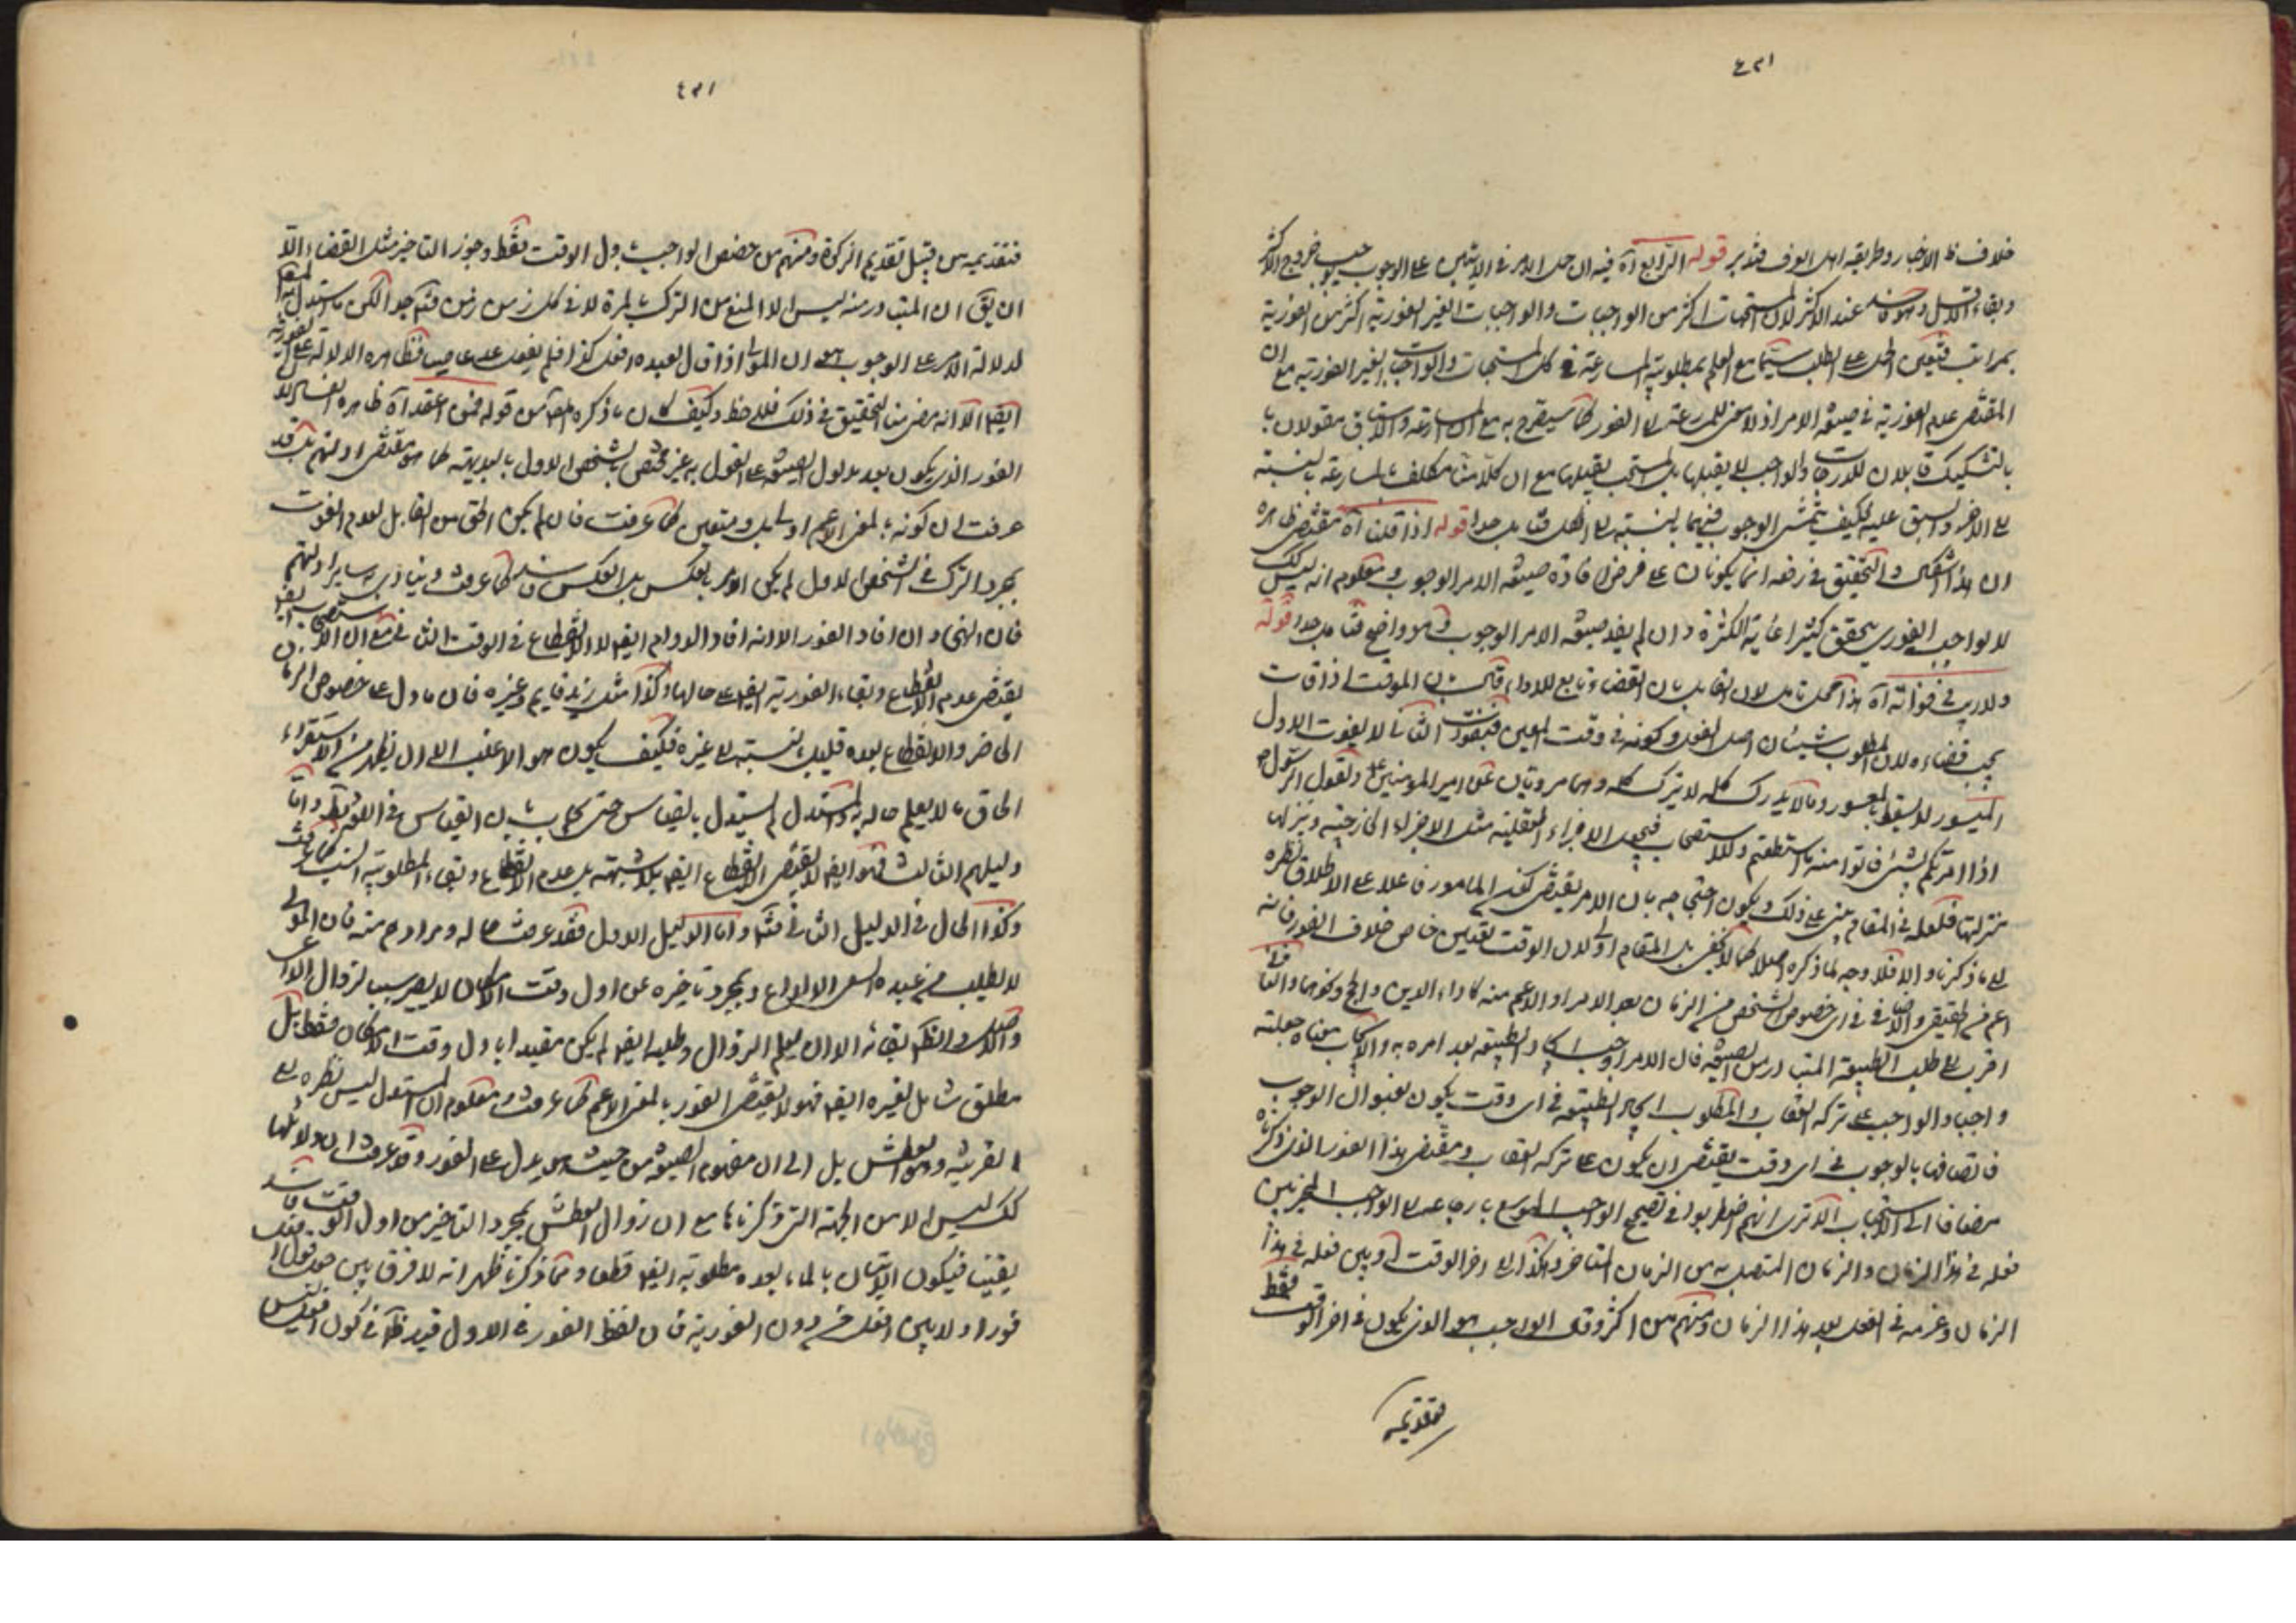 خلاف ظ الاخبار وطريقة اهل العرف فتدبر قوله الرابع آه فيه ان حمل الامر في الايتين على الوجوب يوجب خروج الاكثر
وبقاء الاقل وهو عند الاكثر لان المستحبات اكثر من الواجبات والواجبات الغير الفورية اكثر من الفورية
بمراتب فتعين الحمل على الطلب سيما مع العلم بمطلوبية المسارعة في كل المستحبات والواجبات الغير الفورية مع ان
المقتضى عدم الفورية في صيغة الامر اذ لا معنى للمسارعة الفور كما سيصرح به مع ان المسارعة والاستباق مقولان با
بالتشكيك قابلان للدرجات والواجب لا يقبلها بل المستحب يقبلها مع ان كلا منا مكلف بالمسارعة بالنسبة
الى الاخر والسبق عليه فكيف يتمشى الوجوب فيهما بالنسبة الى الكل فتامل جدا قوله اذا قلنا آه مقتضى ظاهره
ان هذا الاشكال والتحقيق في رفعه انما يكونان على فرض افادة صيغة الامر الوجوب ومعلوم انه ليس كك
لان الواجب الفوري يتحقق كثيرا غاية الكثرة وان لم يفد صيغة الامر الوجوب وهو واضح فتامل جدا قوله
ولا ريب في فواته آه هذا محل تامل لان القائل بان القضاء تابع للاداء قائل بان الموقت اذا فات
يجب قضاءه لان المطلوب شيئان اصل الفعل وكونه في وقت المعين فبفوت الثاني لا يفوت الاول
الميسور لا يسقط بالمعسور وما لا يدرك كله لا يترك كله وهما مرويان عن امير المؤمنين ع ولقول الرسول ص
اذا امرتكم بشئ فاتوا منه ما استطعتم وللاستصحاب فيجعل الاجزاء العقلية مثل الاجزاء الخارجية وينزلها
منزلتها فلعله في المقام يبنى على ذلك ويكون احتجاجه بان الامر يقتضى كون المامور فاعلا على الاطلاق نظره
الى ما ذكرنا والا فلا وجه لما ذكره اصلا كما لا يخفى بل المقام اولى لان الوقت تعيين خاص خلاف الفور فانه
اعم من الحقيقي والاضافي في اي خصوص لشخص من الزمان بعد الامر او الاعم منه كاداء الدين والحج ونحوهما والثاني
اقرب الى طلب الطبيعة المتبادر من الصيغة فان الامر اوجب ايجاد الطبيعة بعد امره به والايجاب معناه جعلته
واجبا والواجب على تركه العقاب والمطلوب ايجاد الطبيعة في اي وقت يكون بعنوان الوجوب
فاتصافها بالوجوب في اي وقت يقتضى ان يكون على تركه العقاب ومقتضى هذا الفور الذي ذكرناه
مضافا الى الاستصحاب الا ترى انهم اضطربوا في تصحيح الواجب الموسع بارجاعه الى الواجب المخير بين
فعله في هذا الزمان والزمان المتصل به من الزمان المتاخر وهكذا الى اخر الوقت او بين فعله في هذا
الزمان وعزمه في الفعل بعد هذا الزمان ومنهم من انكر وقال الواجب هو الذي يكون في اخر الوقت فقط
فتقديمه
فتقديمه من قبيل تقديم الزكوة ومنهم من خصص الواجب باول الوقت فقط وجوز التاخير مثل القضاء اللهم الا
ان يق ان المتبادر منه ليس الا المنع من الترك بالمرة لا في كل زمن زمن فتامل جدا لكن ما استدل به
لدلالة الامر على الوجوب من ان المولى اذا قال لعبده افعل كذا فلم يفعل عد عاصيا فظاهره الدلالة على الفورية
ايضا الا انه مضى منا التحقيق في ذلك فلاحظ وكيف كان ما ذكره بقوله فمن اعتقد آه ظاهره الفساد لان
الفور الذي يكون بعد مدلول الصيغة على القول به غير مختص بالشخص الاول بالبديهة كما هو مقتضى ادلتهم بل قد
عرفت ان كونه بالمعنى الاعم اولى بل ومتعين كما عرفت فان لم يكن الحق من القائل بعدم الفوت
بمجرد الترك في الشخص الاول لم يكن الامر بالعكس بل العكس فاسد كما عرفت وينادى به ساير ادلتهم
فان النهي وان افاد الفور الا انه افاد الدوام ايضا لا الانقطاع في الوقت الثاني مع ان الاستصحاب ايضا
يقتضى عدم الانقطاع وبقاء الفورية ايضا على حالها وكذا مثل زيد قايم وغيره فان ما دل على خصوص الزمان
الحاضر والانقطاع بعده قليل بالنسبة الى غيره فكيف يكون هو الاغلب الا ان يظهر من الاستقراء
الحاق ما لا يعلم حاله به والمستدل لم يستدل بالقياس حتى يجاب بان القياس في اللغة باطل واما
دليلهم الثالث فهو ايضا لا يقتضى الانقطاع ايضا بلا شبهة بل عدم الانقطاع وبقاء المطلوبية السابقة كما عرفت
وكذا الحال في الدليل الثاني فتامل واما الدليل الاول فقد عرفت حاله ومرادهم منه فان المولى
لا يطلب من عبده السعى الا لداع وبمجرد تاخيره عن اول وقت الامكان لا يصير سببا لزوال الداعي
والاصل والظاهر بقائه الا ان يعلم الزوال وطلبه ايضا لم يكن مقيدا باول وقت الامكان فقط بل
مطلق شامل لغيره ايضا فهو لا يقتضى الفور بالمعنى الاعم كما عرفت ومعلوم ان المستدل ليس نظره الى
القرينة وهو العطش بل الى ان مفهوم الصيغة من حيث هو يدل على الفور وقد عرفت ان دلالتها
كك ليس الا من الجهة التي ذكرناها مع ان زوال العطش بمجرد التاخير من اول الوقت فاسد
يقينا فيكون الاتيان بالماء بعده مطلوبة ايضا قطعا ومما ذكرنا ظهر انه لا فرق بين صل
فورا ولا بين افعل من دون الفورية فان لفظ الفور في الاول قيد ظاهر في كون الفعل ليس